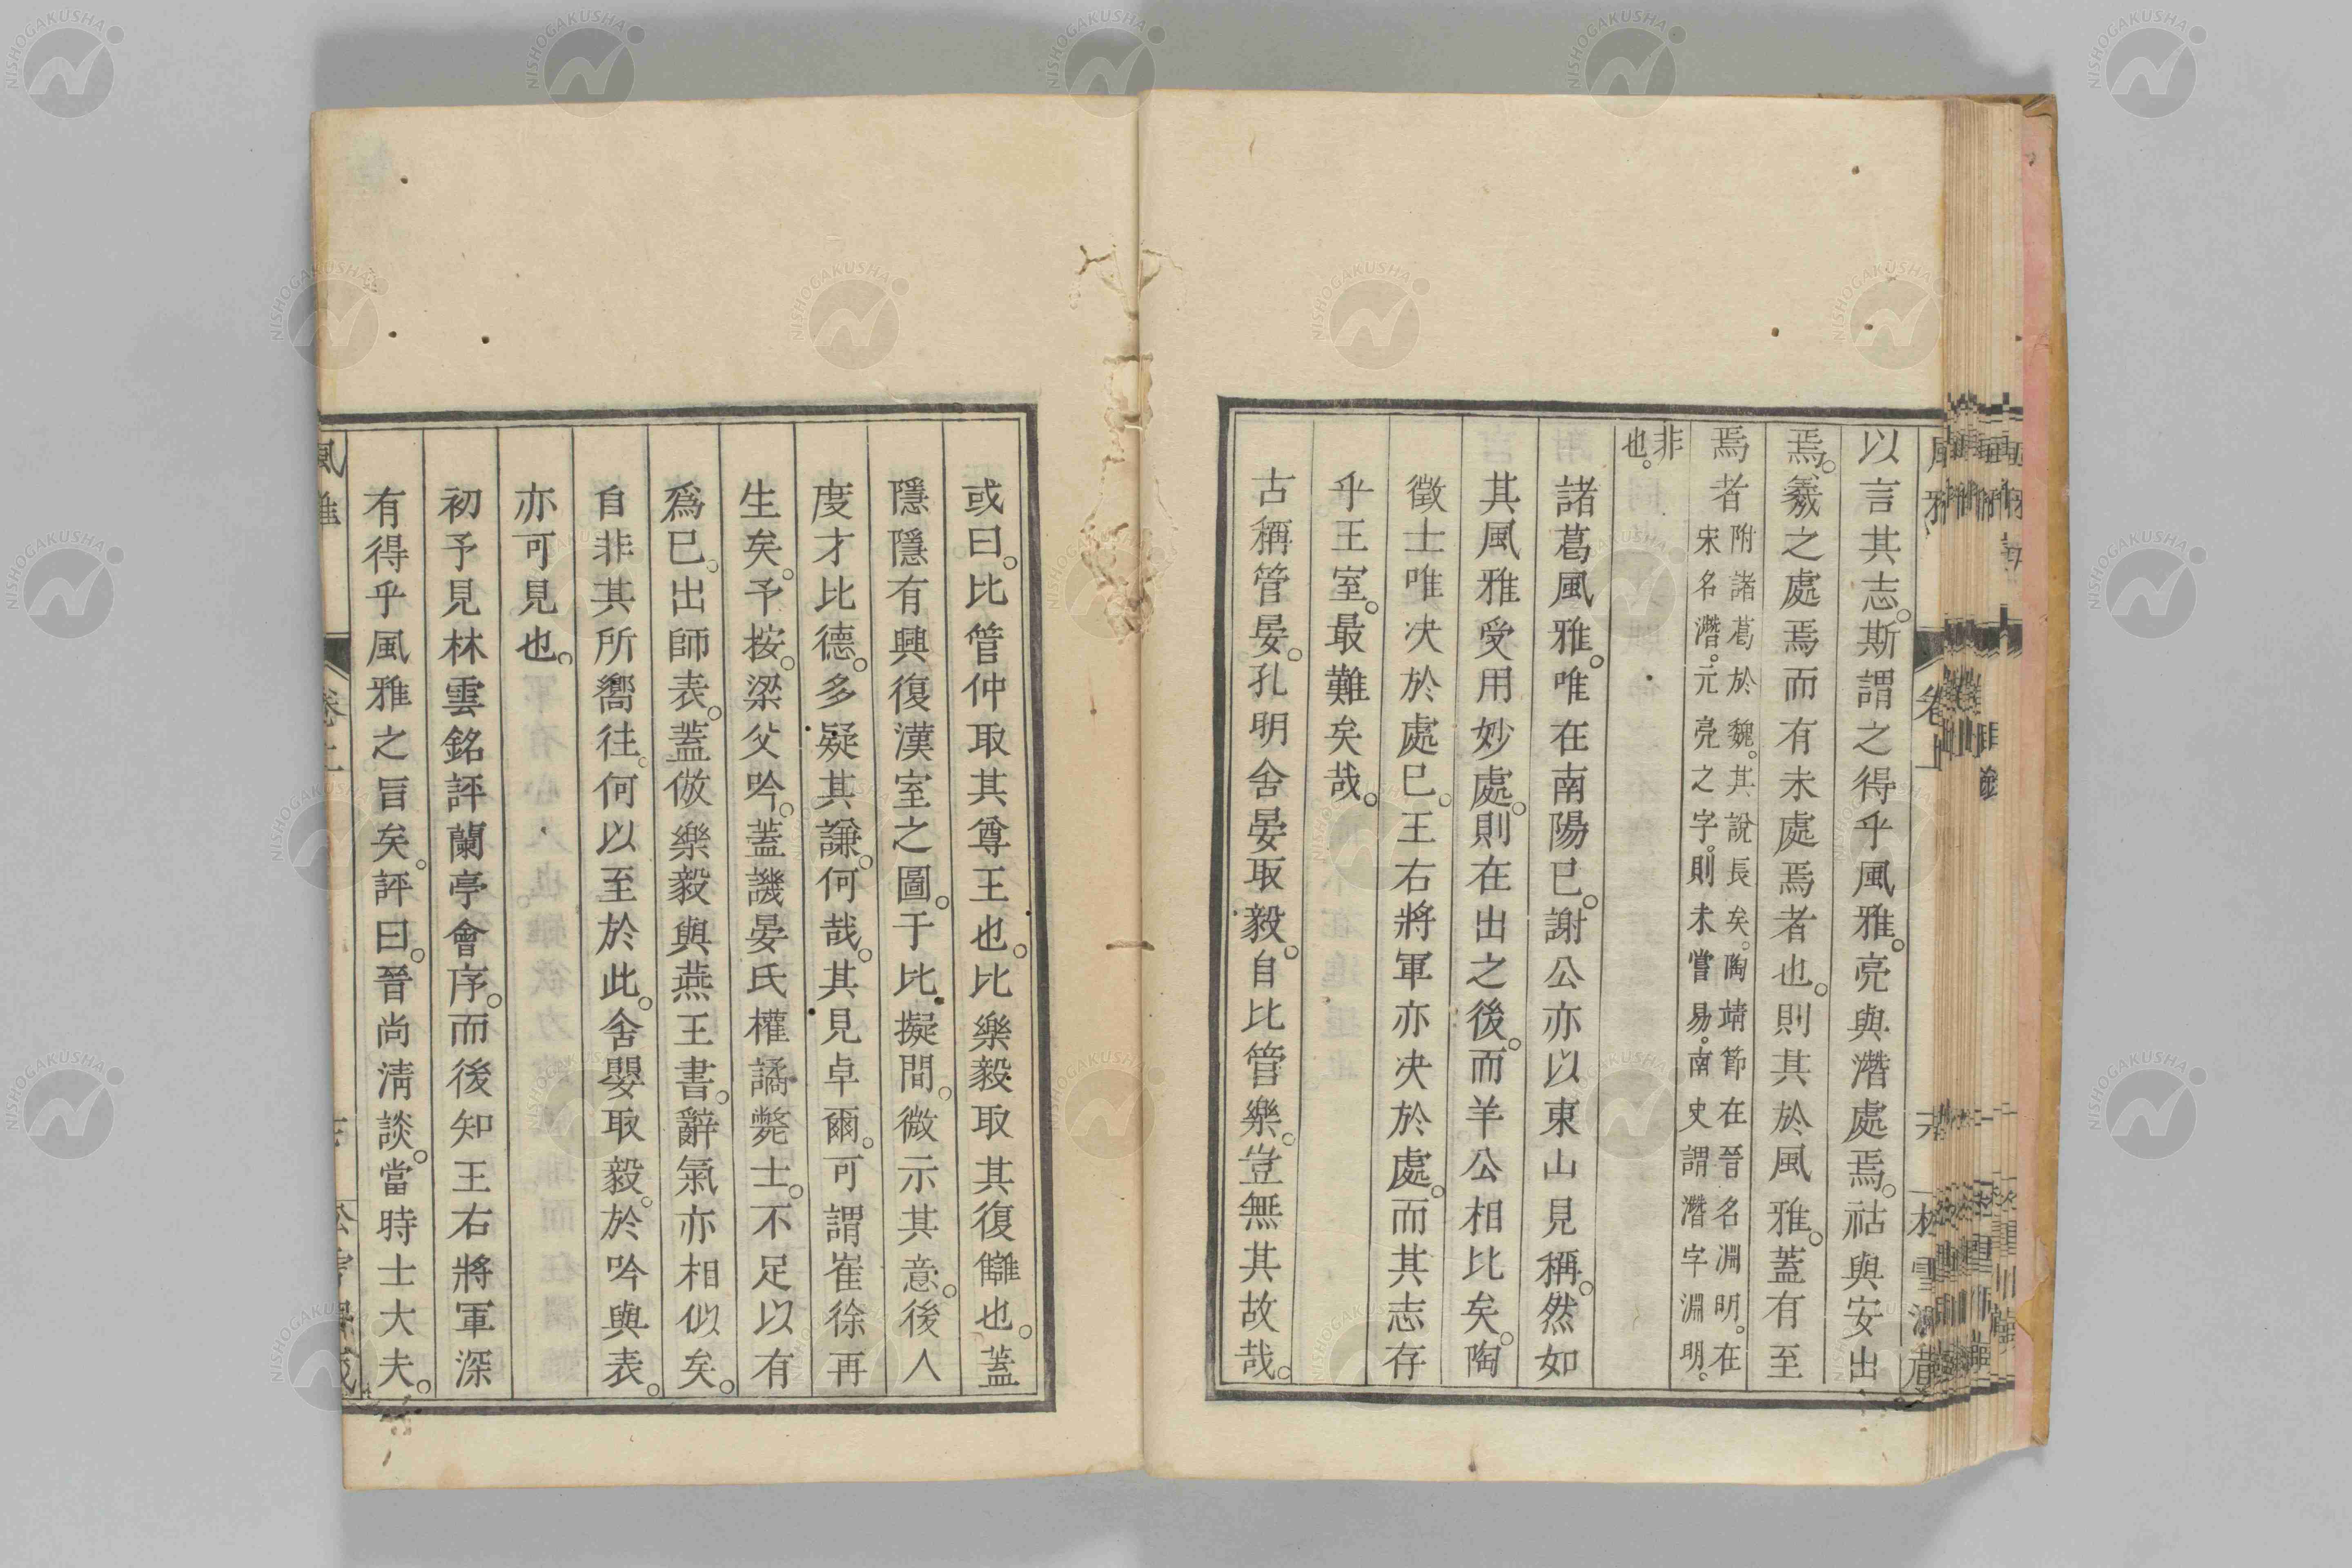 以言其志。斯謂之得乎風雅。亮與濳處焉。祜與安出
焉。羲之處焉而有未處焉者也。則其於風雅。蓋有至
焉者附諸葛於魏。其說長矣。陶靖節在晉名淵明。在
宋名濳。元亮之字。則未嘗易。南史謂濳字淵明。
非
也。
諸葛風雅。唯在南陽已。謝公亦以東山見稱。然如
其風雅受用妙處。則在出之後。而羊公相比矣。陶
徵士唯決於處已。王右將軍亦决於處。而其志存
乎王室。最難矣哉。
古稱管晏。孔明舍晏取毅。自比管樂。豈無其故哉。
或曰。比管仲取其尊王也。比樂毅取其復讎也。蓋
隱隱有興復漢室之圖。于比擬間。微示其意。後人
度才比德。多疑其謙。何哉。其見卓爾。可謂崔徐再
生矣。予按。梁父吟。蓋譏晏氏權譎斃士。不足以有
爲已。出師表。蓋倣樂毅與燕王書。辭氣亦相似矣。
自非其所嚮往。何以至於此。舍嬰取毅。於吟與表。
亦可見也。
初予見林雲銘評蘭亭會序。而後知王右將軍深
有得乎風雅之旨矣。評曰。晉尚淸談。當時士大夫。
NISHOGAKUSHA